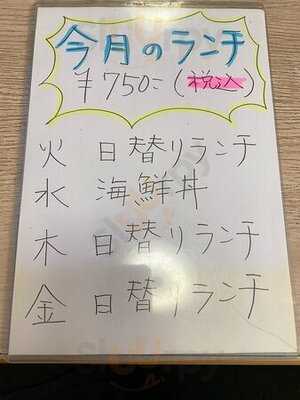 今月のランチ
¥750-(税込)
火 日替りランチ
水 海鮮丼
木 日替りランチ
金 日替りランチ